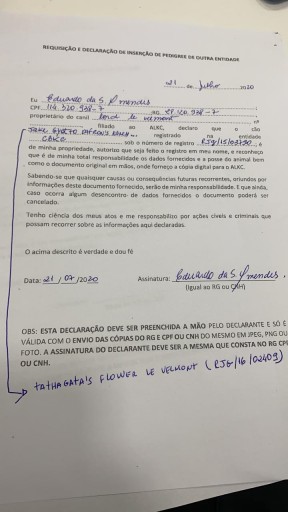 REQUISIÇÃO E DECLARAÇÃO DE INSERÇÃO DE PEDIGREE DE OUTRA ENTIDADE
21 de Julho 2020
Eu Eduardo da S. Mendes
CPF
proprietário do canil
filiado ao ALKC, declaro que o cão
registrado na entidade
CBKC sob o número de registro RJG/15/03350, é
de minha propriedade, autorizo que seja feito o registro em meu nome, e reconheço
que é de minha total responsabilidade os dados fornecidos e a posse do animal bem
como o documento original em mãos, onde forneço a cópia digital para o ALKC.
Sabendo-se que quaisquer causas ou consequências futuras recorrentes, oriundos por
informações deste documento fornecido, serão de minha responsabilidade. E que ainda,
caso ocorra algum desencontro de dados fornecidos o documento poderá ser
cancelado.
Tenho ciência dos meus atos e me responsabilizo por ações cíveis e criminais que
possam recorrer sobre as informações aqui declaradas.
O acima descrito é verdade e dou fé
Data: 21 / 07 /2020 Assinatura: Eduardo da S. Mendes.
(Igual ao RG ou CNH)
OBS: ESTA DECLARAÇÃO DEVE SER PREENCHIDA A MÃO PELO DECLARANTE E SÓ É
VÁLIDA COM O ENVIO DAS CÓPIAS DO RG E CPF OU CNH DO MESMO EM JPEG, PNG OU
FOTO. A ASSINATURA DO DECLARANTE DEVE SER A MESMA QUE CONSTA NO RG CPF
OU CNH.
TATHAGATA'S FLOWER LE VELMONT (RJG/16/02409)